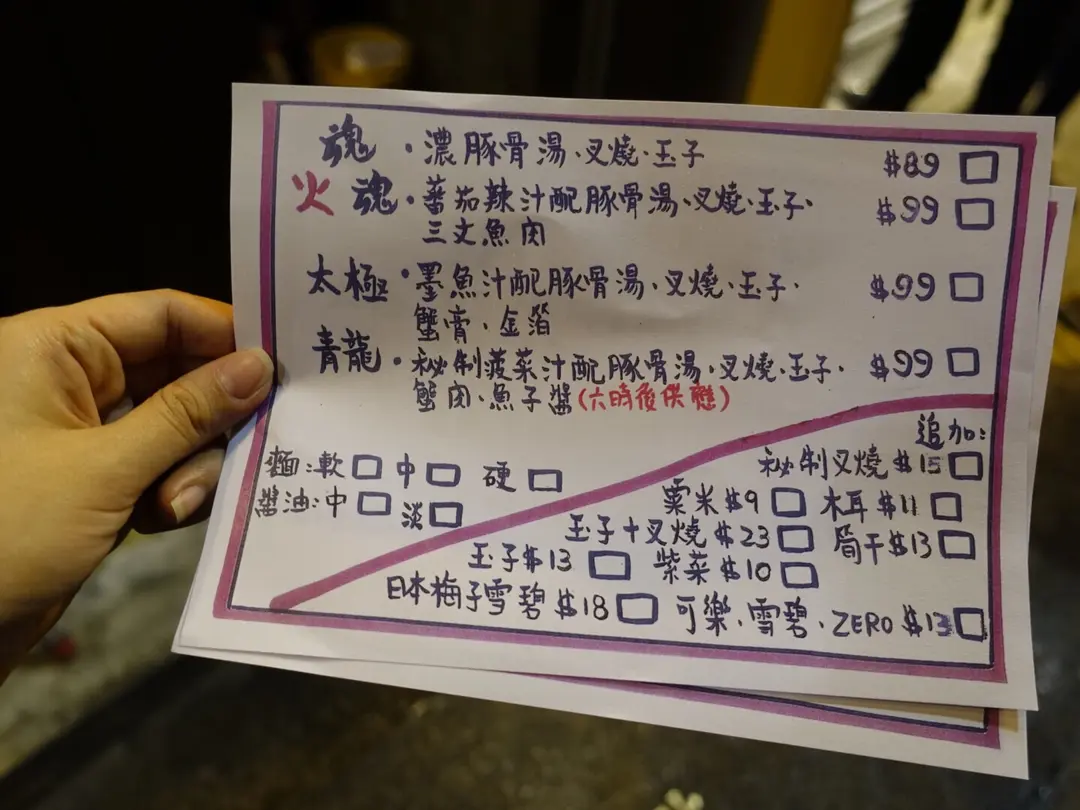 魂・濃豚骨湯、叉燒、玉子 $89
火魂・蕃茄辣汁配豚骨湯、叉燒、玉子、 $99
三文魚肉
太極・墨魚汁配豚骨湯、叉燒、玉子、 $99
蟹膏、金箔
青龍・秘制菠菜汁配豚骨湯、叉燒、玉子、 $99
蟹肉、魚子醬(六時後供應)
追加:
麵:軟 中 硬
秘制叉燒 $15
醬油:中 淡
粟米 $9 木耳 $11
玉子+叉燒 $23 筍干 $13
玉子 $13 紫菜 $10
日本梅子雪碧 $18 可樂、雪碧、ZERO $13